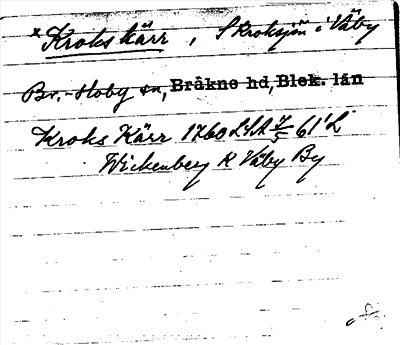 *Kroks Kärr, S Kroksjön i Väby
Br.-Hoby sn, Bräkne hd, Blek. län
Kroks Kärr 1760 LSA 61'L
Wickenberg K Väby By